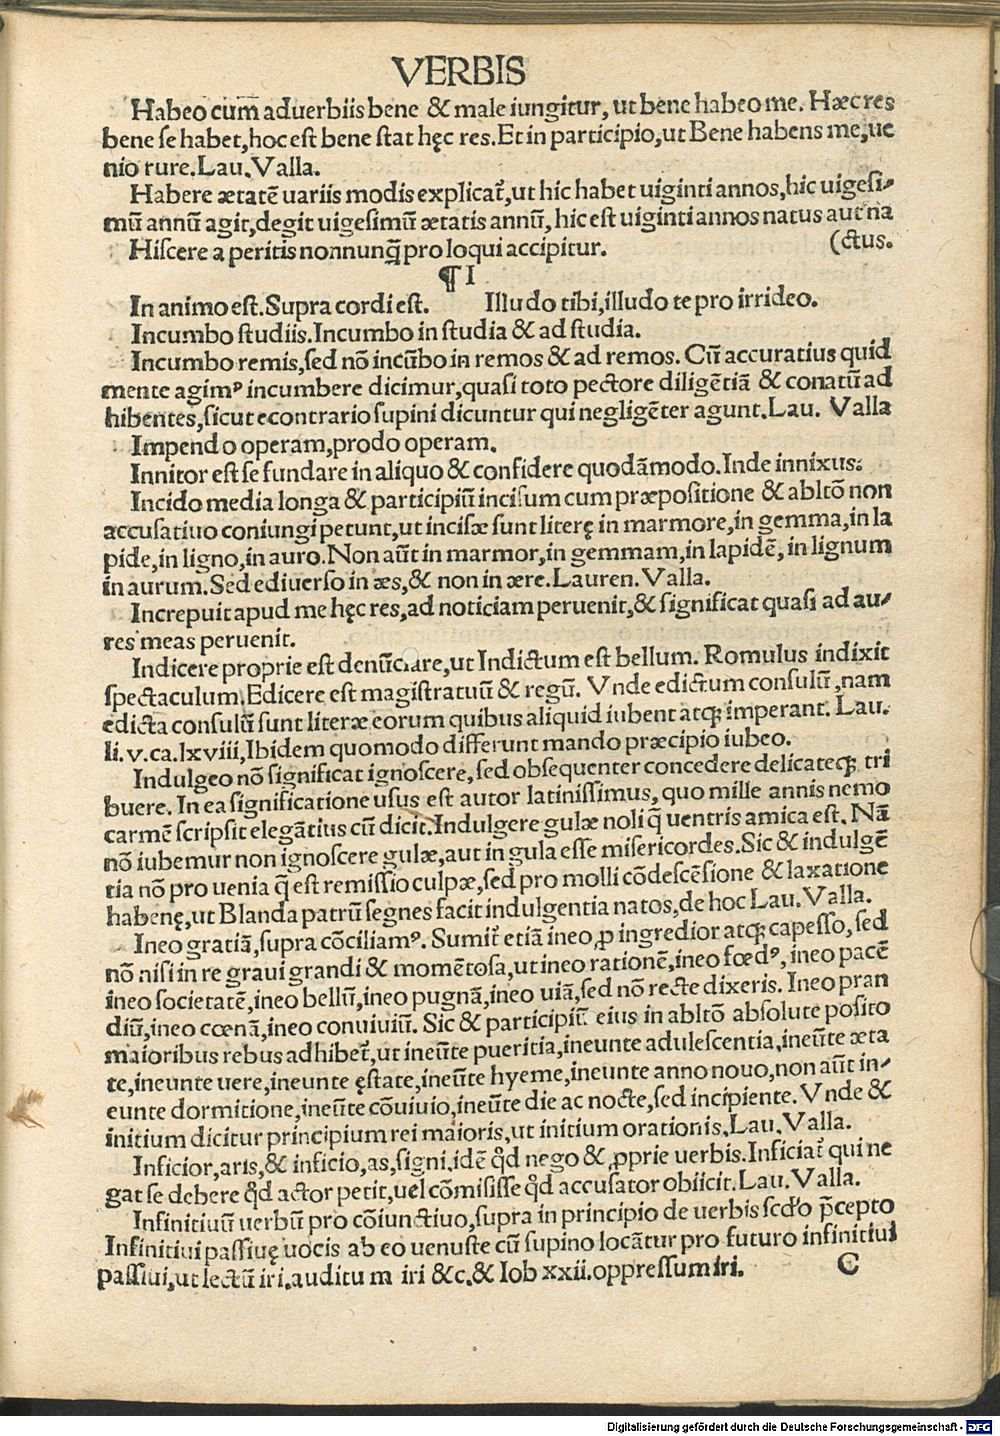 VERBIS
Habeo cum aduerbiis bene & male iungitur, ut bene habeo me. Hæc res
bene se habet, hoc est bene stat hęc res. Et in participio, ut Bene habens me, ue
nio rure. Lau. Valla.
Habere ætatē uariis modis explicat᷑, ut hic habet uiginti annos, hic uigesi-
mū annū agit, degit uigesimū ætatis annū, hic est uiginti annos natus aut na
Hiscere a peritis nonnunq̄ pro loqui accipitur. (ctus.
¶ I
In animo est. Supra cordi est. Illudo tibi, illudo te pro irrideo.
Incumbo studiis. Incumbo in studia & ad studia.
Incumbo remis, sed nō incūbo in remos & ad remos. Cū accuratius quid
mente agimꝰ incumbere dicimur, quasi toto pectore diligētiā & conatū ad
hibentes, sicut econtrario supini dicuntur qui negligēter agunt. Lau. Valla
Impendo operam, prodo operam.
Innitor est se fundare in aliquo & confidere quodāmodo. Inde innixus:
Incido media longa & participiū incisum cum præpositione & abltō non
accusatiuo coniungi petunt, ut incisæ sunt literę in marmore, in gemma, in la
pide, in ligno, in auro. Non aūt in marmor, in gemmam, in lapidē, in lignum
in aurum. Sed ediuerso in æs, & non in ære. Lauren. Valla.
Increpuit apud me hęc res, ad noticiam peruenit, & significat quasi ad au-
res meas peruenit.
Indicere proprie est denūciare, ut Indictum est bellum. Romulus indixit
spectaculum. Edicere est magistratuū & regū. Vnde edictum consulū, nam
edicta consulū sunt literæ eorum quibus aliquid iubent atqꝫ imperant. Lau.
li. v. ca. lxviii, Ibidem quomodo differunt mando præcipio iubeo.
Indulgeo nō significat ignoscere, sed obsequenter concedere delicateqꝫ tri
buere. In ea significatione usus est autor latinissimus, quo mille annis nemo
carmē scripsit elegātius cū dicit. Indulgere gulæ noli q̄ uentris amica est. Nā
nō iubemur non ignoscere gulæ, aut in gula esse misericordes. Sic & indulgē
tia nō pro uenia q̄ est remissio culpæ, sed pro molli cōdescēsione & laxatione
habenę, ut Blanda patrū segnes facit indulgentia natos, de hoc Lau. Valla.
Ineo gratiā, supra cōciliamꝰ. Sumit᷑ etiā ineo, ꝓ ingredior atqꝫ capesso, sed
nō nisi in re graui grandi & momētosa, ut ineo rationē, ineo fœdꝰ, ineo pacē
ineo societatē, ineo bellū, ineo pugnā, ineo uiā, sed nō recte dixeris. Ineo pran
diū, ineo cœnā, ineo conuiuiū. Sic & participiū eius in abltō absolute posito
maioribus rebus adhibet᷑, ut ineūte pueritia, ineunte adulescentia, ineūte æta
te, ineunte uere, ineunte ęstate, ineūte hyeme, ineunte anno nouo, non aūt in-
eunte dormitione, ineūte cōuiuio, ineūte die ac nocte, sed incipiente. Vnde &
initium dicitur principium rei maioris, ut initium orationis. Lau. Valla.
Inficior, aris, & inficio, as, signi. idē qd̓ nego & ꝓprie uerbis. Inficiat᷑ qui ne
gat se debere qd̓ actor petit, uel cōmisisse qd̓ accusator obiicit. Lau. Valla.
Infinitiuū uerbū pro cōiunctiuo, supra in principio de uerbis scd̓o p̄cepto
Infinitiui passiuę uocis ab eo uenuste cū supino locātur pro futuro infinitiui
passiui, ut lectū iri. auditu m iri &c. & Iob xxii. oppressum iri. C
Digitalisierung gefördert durch die Deutsche Forschungsgemeinschaft - DFG